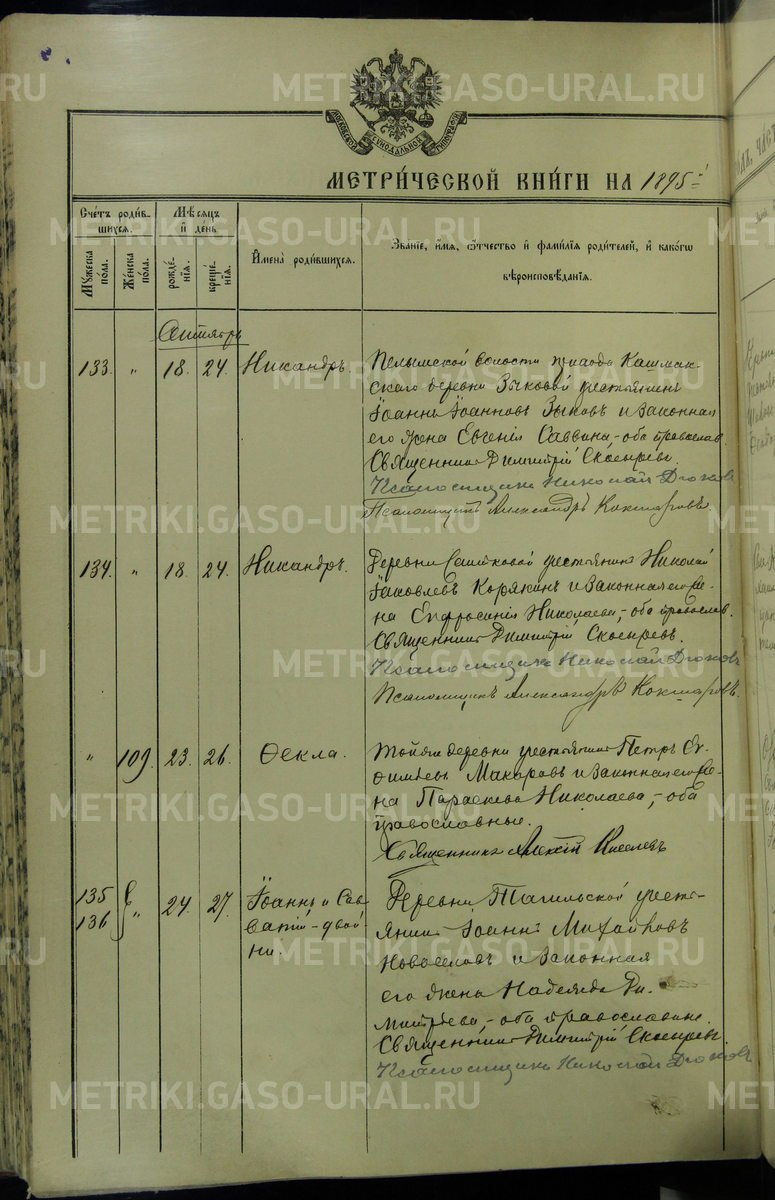 METRIKI.GASO-URAL.RU
МОСКОВСКОЙ СѴНОДАЛЬНОЙ ТѴПОГРАФІИ
МЕТРИ́ЧЕСКОЙ КНИ́ГИ НА 1895 г.
Сче́тъ роди́вшихся.
Мꙋ́жеска по́ла.
Же́нска по́ла.
Мѣ́сяцъ и҆ де́нь
рожде́нїѧ.
креще́нїѧ.
И҆мена̀ роди́вшихся.
Зва́нїе, и҆́мѧ, ѻ҆́тчество и҆ фами́лїѧ роди́телей, и҆ како́гѡ
вѣроисповѣ́данїѧ.
Сентябрь
133. " 18. 24. Никандръ.
Пелымской волости прихода Кашмак-
скаго деревни Зыковой крестьянинъ
Іоаннъ Іоанновъ Зыковъ и законная
его жена Евгенія Саввина, - оба православ.
Священникъ Димитрій Скосыревъ.
Псаломщикъ Николай
Псаломщикъ Александръ Кокшаровъ.
134. " 18. 24. Никандръ.
Деревни крестьянинъ Николай
Іаковлевъ Корякинъ и законная его же-
на Евфросинія Николаева, - оба православ.
Священникъ Димитрій Скосыревъ.
Псаломщикъ Николай
Псаломщикъ Александръ Кокшаровъ.
" 109. 23. 26. Ѳекла.
Тойже деревни крестьянинъ Петръ Ев-
фимьевъ Макаровъ и законная его же-
на Параскева Николаева, - оба
православные.
Священникъ Алексій Киселевъ
135
136 " 24. 27. Іоаннъ и Сав-
ватій - двой-
ни.
Деревни Тагильской кресть-
янинъ Іоаннъ Михайловъ
Новоселовъ и законная
его жена Надежда Ди-
митріева, - оба православные.
Священникъ Димитрій Скосыревъ.
Псаломщикъ Николай